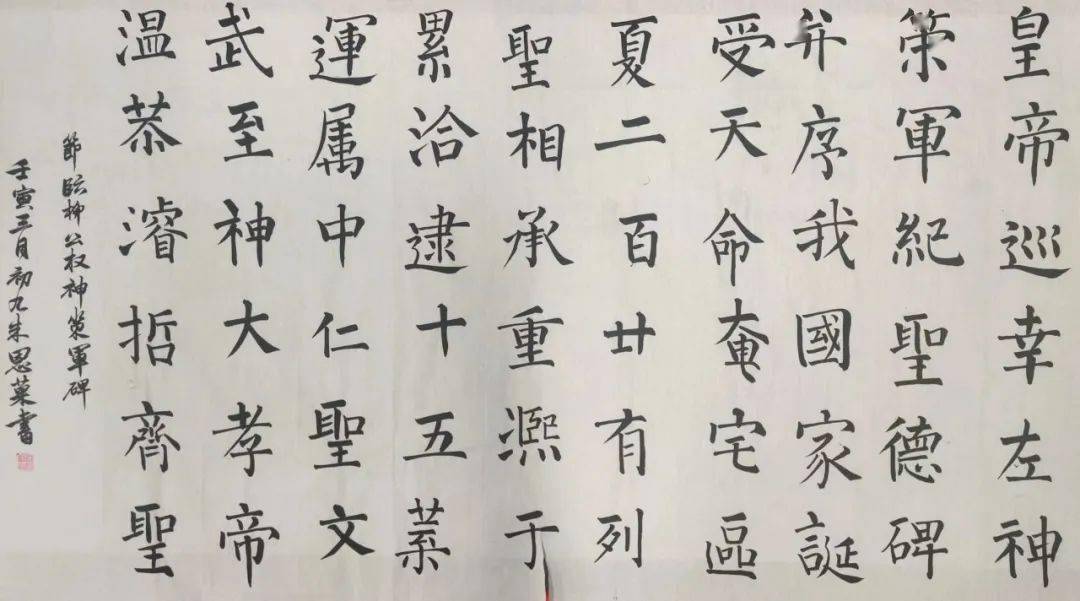 皇帝巡幸左神
策軍紀聖德碑
并序我國家誕
受天命奄宅區
夏二百廿有列
聖相承重熙于
累洽逮十五葉
運属中仁聖文
武至神大孝帝
温恭濬哲齊聖
節臨柳公权神策軍碑
壬寅三月初九朱恩菓書